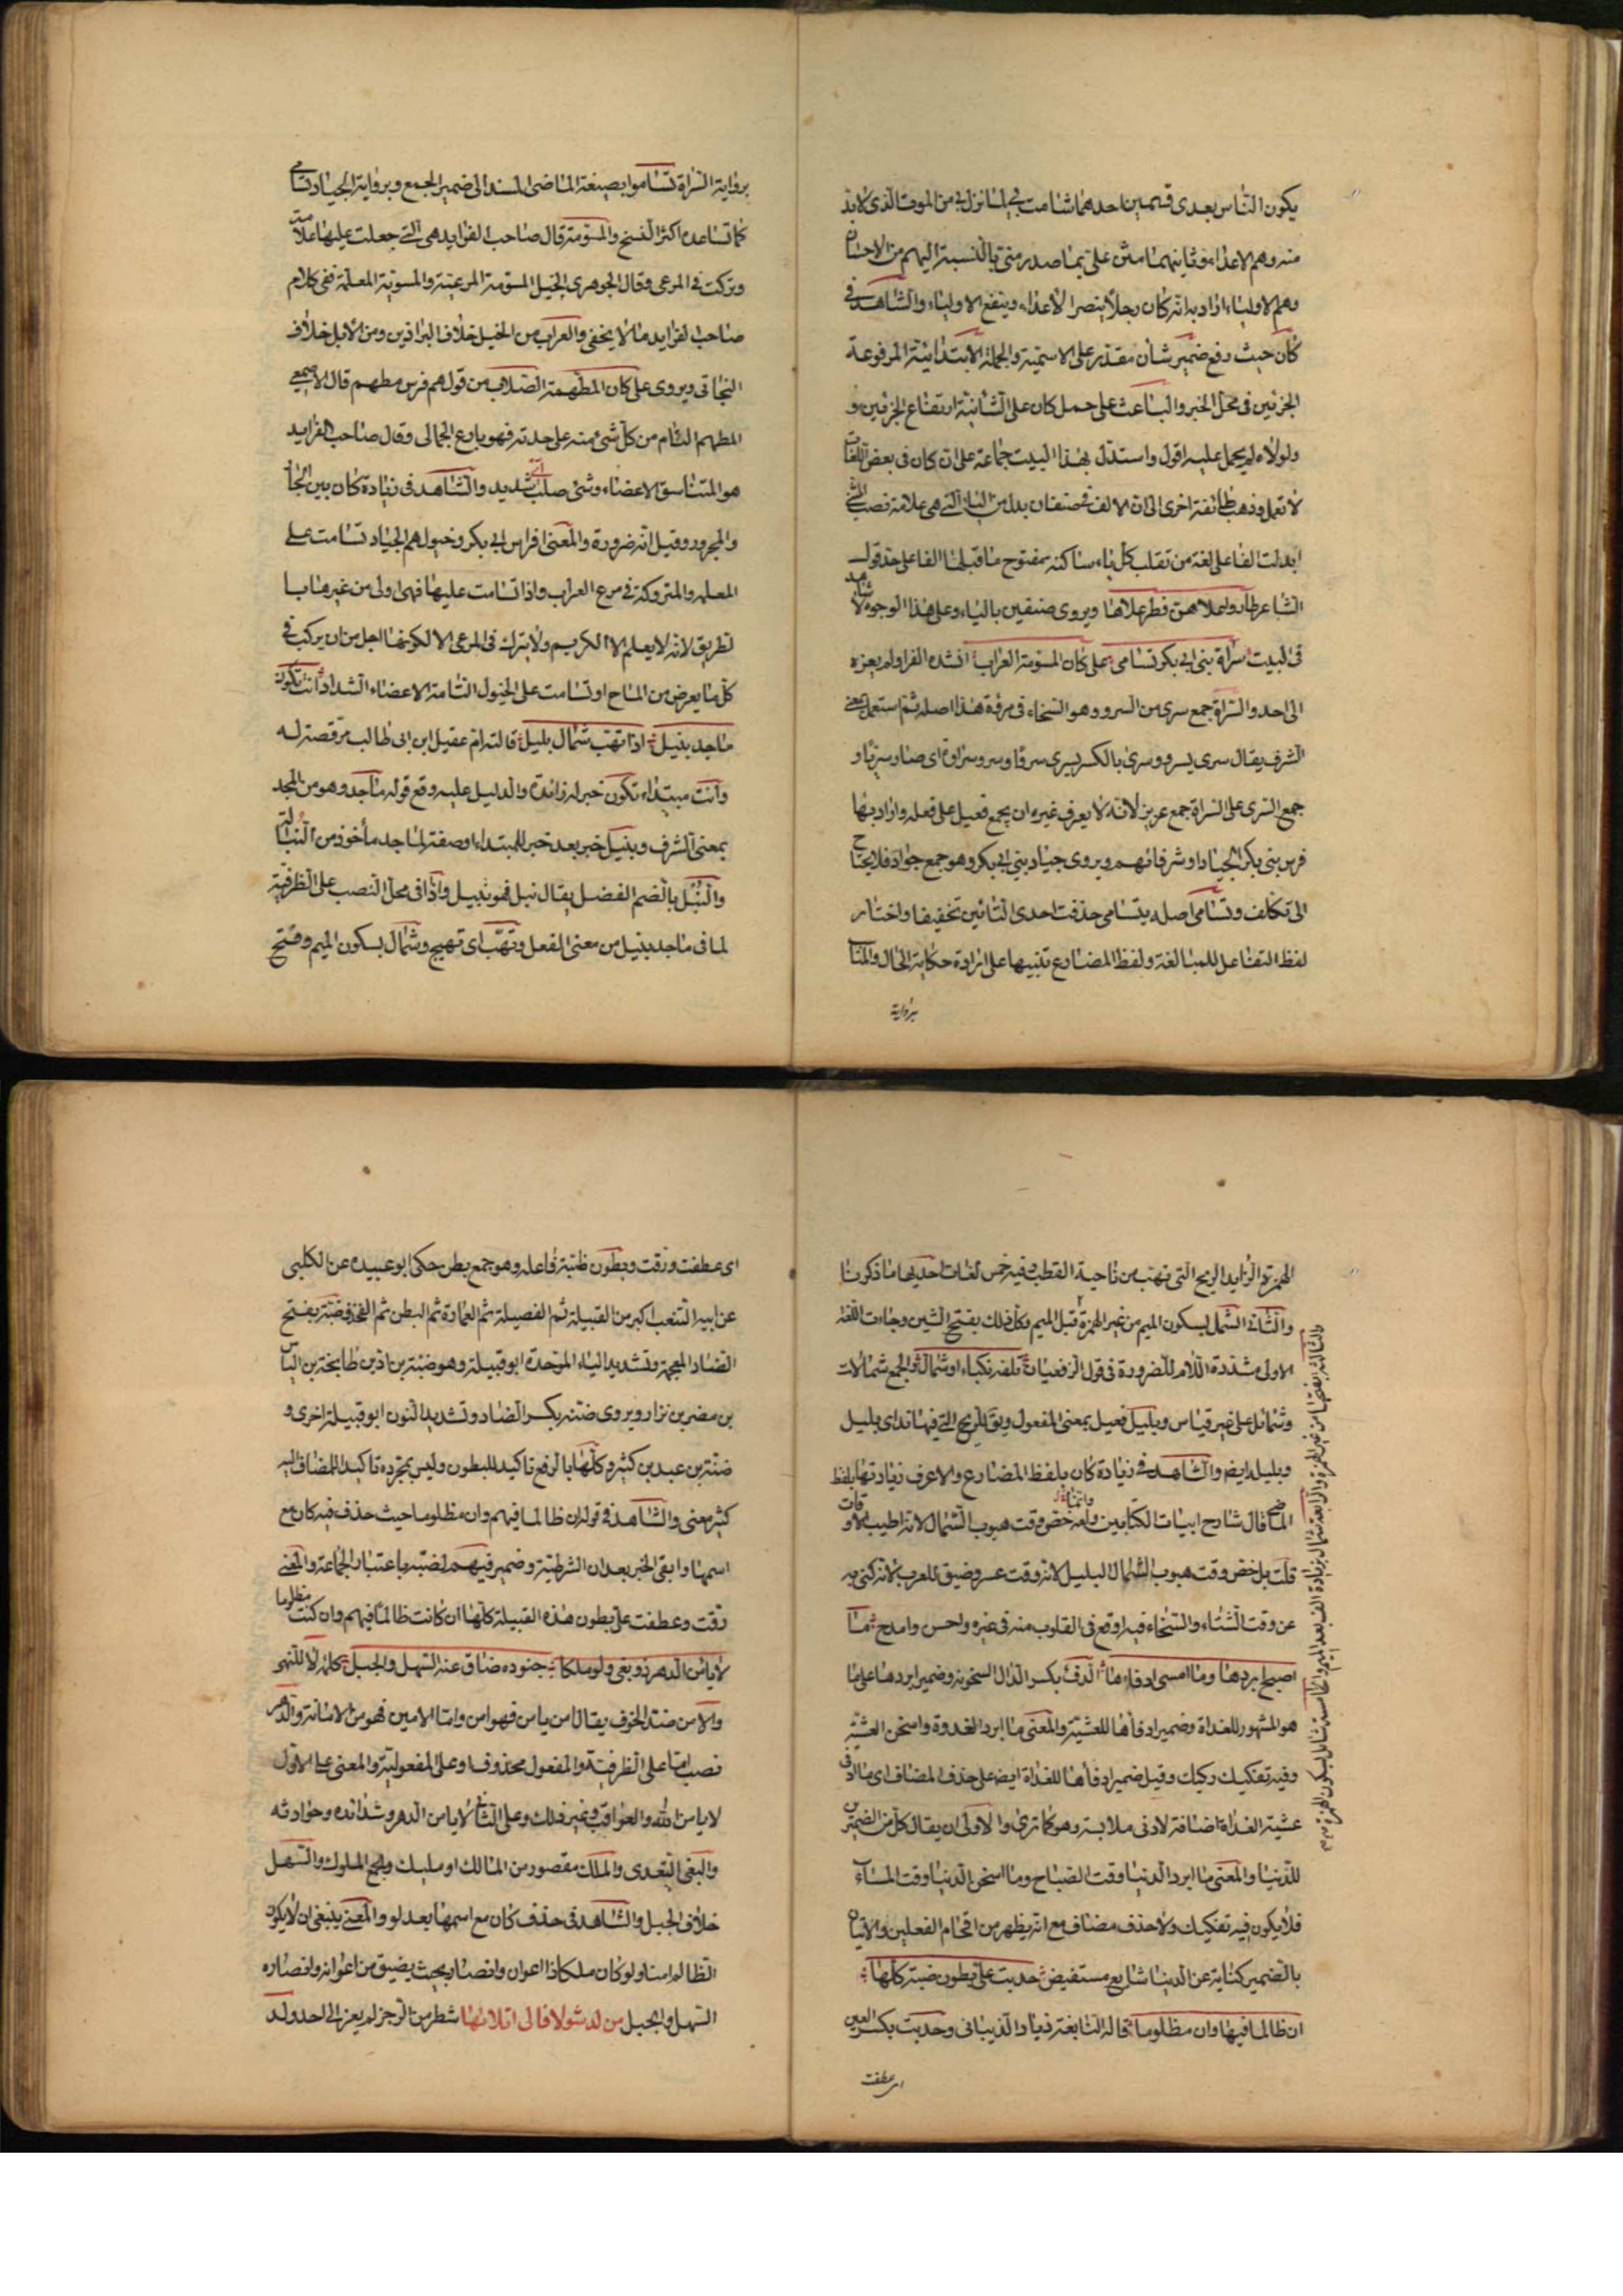 يكون الناس بعدى قسمين احدهما شامت بى لما نزل بى من الموت الذى لا بد
منه وهم الاعداء وثانيهما مثن على بما صدر منى بالنسبة اليهم من الاحسان
وهم الاولياء اراد به انه كان رجلا يضر الاعداء وينفع الاولياء والشاهد فى
كان حيث رفع ضمير شأن مقدر على الاسمية والجملة الابتدائية المرفوعة
الجزئين فى محل الخبر والباعث على حمل كان على الشانية ارتفاع الجزئين و
ولولاه لم يحمل عليه اقول واستدل بهذا البيت جماعة على ان كان فى بعض اللغات
لا تعمل وذهب طائفة اخرى الى ان الالف فى صنفان بدل من الياء التى هى علامة نصب المثنى
ابدلت الفا على لغة من تقلب كل ياء ساكنة مفتوح ما قبلها الفا على حد قول
الشاعر طاروا علاهن فطر علاها ويروى صنفين بالياء وعلى هذا الوجوه لا شاهد
فى البيت سراة بنى ابى بكر تسامى على كان المسومة العراب انشده الفرا ولم يعزه
الى احد والسراة جمع سرى من السرو وهو السخاء فى مروة هذا اصله ثم استعمل بمعنى
الشرف يقال سرى يسرو وسرى بالكسر يسرى سروا وسرو سراوة اى صار سريا و
جمع السرى على السراة جمع عزيز لانه لا يعرف غيره ان يجمع فعيل على فعله واراد بها
فرس بنى بكر الجياد او شرفائهم ويروى جياد بنى ابى بكر وهو جمع جواد فلا يحتاج
الى تكلف وتسامى اصله يتسامى حذفت احدى التائين تخفيفا واختار
لفظ التفاعل للمبالغة ولفظ المضارع تنبيها على ارادة حكاية الحال والمتأ
برواية
برواية السراة تساموا بصيغة الماضى المسند الى ضمير الجمع وبرواية الجياد تسامى
كما تساعده اكثر النسخ والمسومة قال صاحب الفرايد هى التى جعلت عليها علامة
وتركت فى المرعى وقال الجوهرى الخيل المسومة المرعية والمسومة المعلمة ففى كلام
صاحب الفرايد ما لا يخفى والعراب من الخيل خلاف البراذين ومن الابل خلاف
النجاتى ويروى على كان المطهمة الصلاب من قولهم فرس مطهم قال الاصمعى
المطهم التام من كل شىء منه على حدته فهو بارع الجمال وقال صاحب الفرايد
هو المتناسق الاعضاء وشىء صلب اى شديد والشاهد فى زيادة كان بين الجار
والمجرور وقيل انه ضرورة والمعنى افراس ابى بكر وخيولهم الجياد تسامت على
المعلمه والمتروكة فى مرع العراب واذا تسامت عليها فهى اولى من غيرها با
لطريق لانه لا يعلم الا الكريم ولا يترك فى المرعى الا لكونها اجل من ان يركب فى
كل ما يعرض من المباح او تسامت على الخيول التامة الاعضاء الشداد انت تكون
ماجد نبيل اذا تهب شمال بليل قالته ام عقيل ابن ابى طالب مرقصة له
وانت مبتداء تكون خبر له زائدة والدليل عليه وقع قوله ماجد وهو من المجد
بمعنى الشرف ونبيل خبر بعد خبر للمبتداء او صفة لماجد مأخوذ من النبالة
والنبل بالضم الفضل يقال نبل فهو نبيل واذا فى محل النصب على الظرفية
لما فى ماجد نبيل من معنى الفعل وتهب اى تهيج وشمال بسكون الميم وفتح
الهمزة الزايد الريح التى تهب من ناحية القطب وفيه خمس لغات احديها ما ذكرنا
والثانى الشمل بسكون الميم من غير الهمزة قبل الميم وكل ذلك بفتح الشين وجاءت اللغة
الاولى مشددة اللام للضرورة فى قول الزفعيان تلفه نكباء او شمال والجمع شمالات
وشمائل على غير قياس وبليل فعيل بمعنى المفعول ويق للريح التى فيها نداى بليل
وبليله ايض والشاهد فى زيادة كان بلفظ المضارع والاعرف زيادتها بلفظ
الماضى قال شارح ابيات الكتابين وانما خص وقت هبوب الشمال لانه اطيب الاوقات
قلت بل خص وقت هبوب الشمال البليل لانه وقت عسر وضيق للعرب لانه كنى به
عن وقت الشتاء والسخاء فيه اوقع فى القلوب منه فى غيره واحسن وامدح ما
اصبح ابردها وما امسى ادفاءها الدفء بكسر الدال السخونة وضمير ابردها على ما
هو المشهور للغداة وضمير ادفأها للعشية والمعنى ما ابرد الغدوة واسخن العشية
وفيه تفكيك ركيك وقيل ضمير ادفأها للغداة ايض على حذف المضاف اى ما ادفى
عشية الغداة اضافة لادنى ملابسة وهو كما ترى والاولى ان يقال كل من الضميرين
للدنيا والمعنى ما ابرد الدنيا وقت الصباح وما اسخن الدنيا وقت المساء
فلا يكون فيه تفكيك ولا حذف مضاف مع انه يظهر من اقحام الفعلين والاتيان
بالضمير كناية عن الدنيا شايع مستفيض حدبت على بطون ضبة كلها
ان ظالما فيها وان مظلوما قاله النابغة زياد الذبيانى وحدبت بكسر العين
والثالثة بفتحها من غير الهمزة والرابعة شمال بزيادة الف بعد الميم والخامسة شامل بسكون الهمزة
اى عطفت
اى عطفت ورقت وبطون ظبية فاعله وهو جمع بطن حكى ابو عبيده عن الكلبى
عن ابيه الشعب اكبر من القبيلة ثم الفصيلة ثم العمارة ثم البطن ثم الفخذ وضبة بفتح
الضاد المعجمة وتشديد الباء الموحدة ابو قبيلة وهو ضبة بن اد بن طابخة بن الياس
بن مضر بن نزار ويروى ضنة بكسر الضاد وتشديد النون ابو قبيلة اخرى و
ضنة بن عبد بن كثير وكلها بالرفع تاكيد للبطون وليس بجره تاكيدا للمضاف اليه
كثير معنى والشاهد فى قوله ان ظالما فيهم وان مظلوما حيث حذف فيه كان مع
اسمها وابقى الخبر بعد ان الشرطية وضمير فيهم لضبة باعتبار الجماعة والمعنى
رقت وعطفت على بطون هذه القبيلة كلها ان كانت ظالما فيهم وان كنت مظلوما
لا يامن الدهر ذو بغى ولو ملكا جنوده ضاق عنه السهل والجبل كلمة لا للنهى
والامن ضد الخوف يقال امن يامن فهو امن واما الامين فهو من الامانة والدهر
نصب اما على الظرفية والمفعول محذوف او على المفعولية والمعنى على الاول
لا يامن الله والعواقب وغير ذلك وعلى الثانى لا يامن الدهر وشدائده وحوادثه
والبغى التعدى والملك مقصور من المالك او مليك ويجمع الملوك والسهل
خلاف الجبل والشاهد فى حذف كان مع اسمها بعد لو والمعنى ينبغى ان لا يكون
الظالم امنا ولو كان ملكا ذا اعوان وانصار بحيث يضيق من اعوانه وانصاره
السهل والجبل من لد شولا فالى اتلائها شطر من الرجز لم يعز الى احد ولد